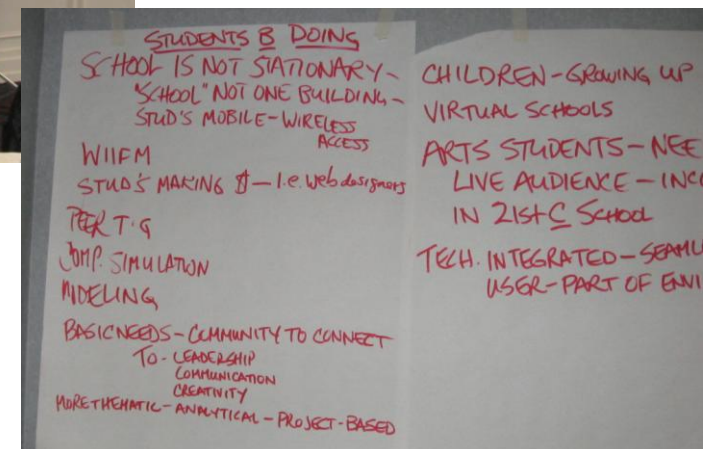 STUDENTS B DOING
SCHOOL IS NOT STATIONARY-
"SCHOOL" NOT ONE BUILDING-
STUD'S MOBILE-WIRELESS
ACCESS
WIIFM
STUD'S MAKING $ - I.e. Web designers
PEER T·G
COMP. SIMULATION
MODELING
BASIC NEEDS - COMMUNITY TO CONNECT
TO - LEADERSHIP
COMMUNICATION
CREATIVITY
MORE THEMATIC - ANALYTICAL - PROJECT-BASED
CHILDREN - GROWING UP
VIRTUAL SCHOOLS
ARTS STUDENTS - NEE
LIVE AUDIENCE - INC
IN 21st C SCHOOL
TECH. INTEGRATED - SEAML
USER - PART OF ENVI